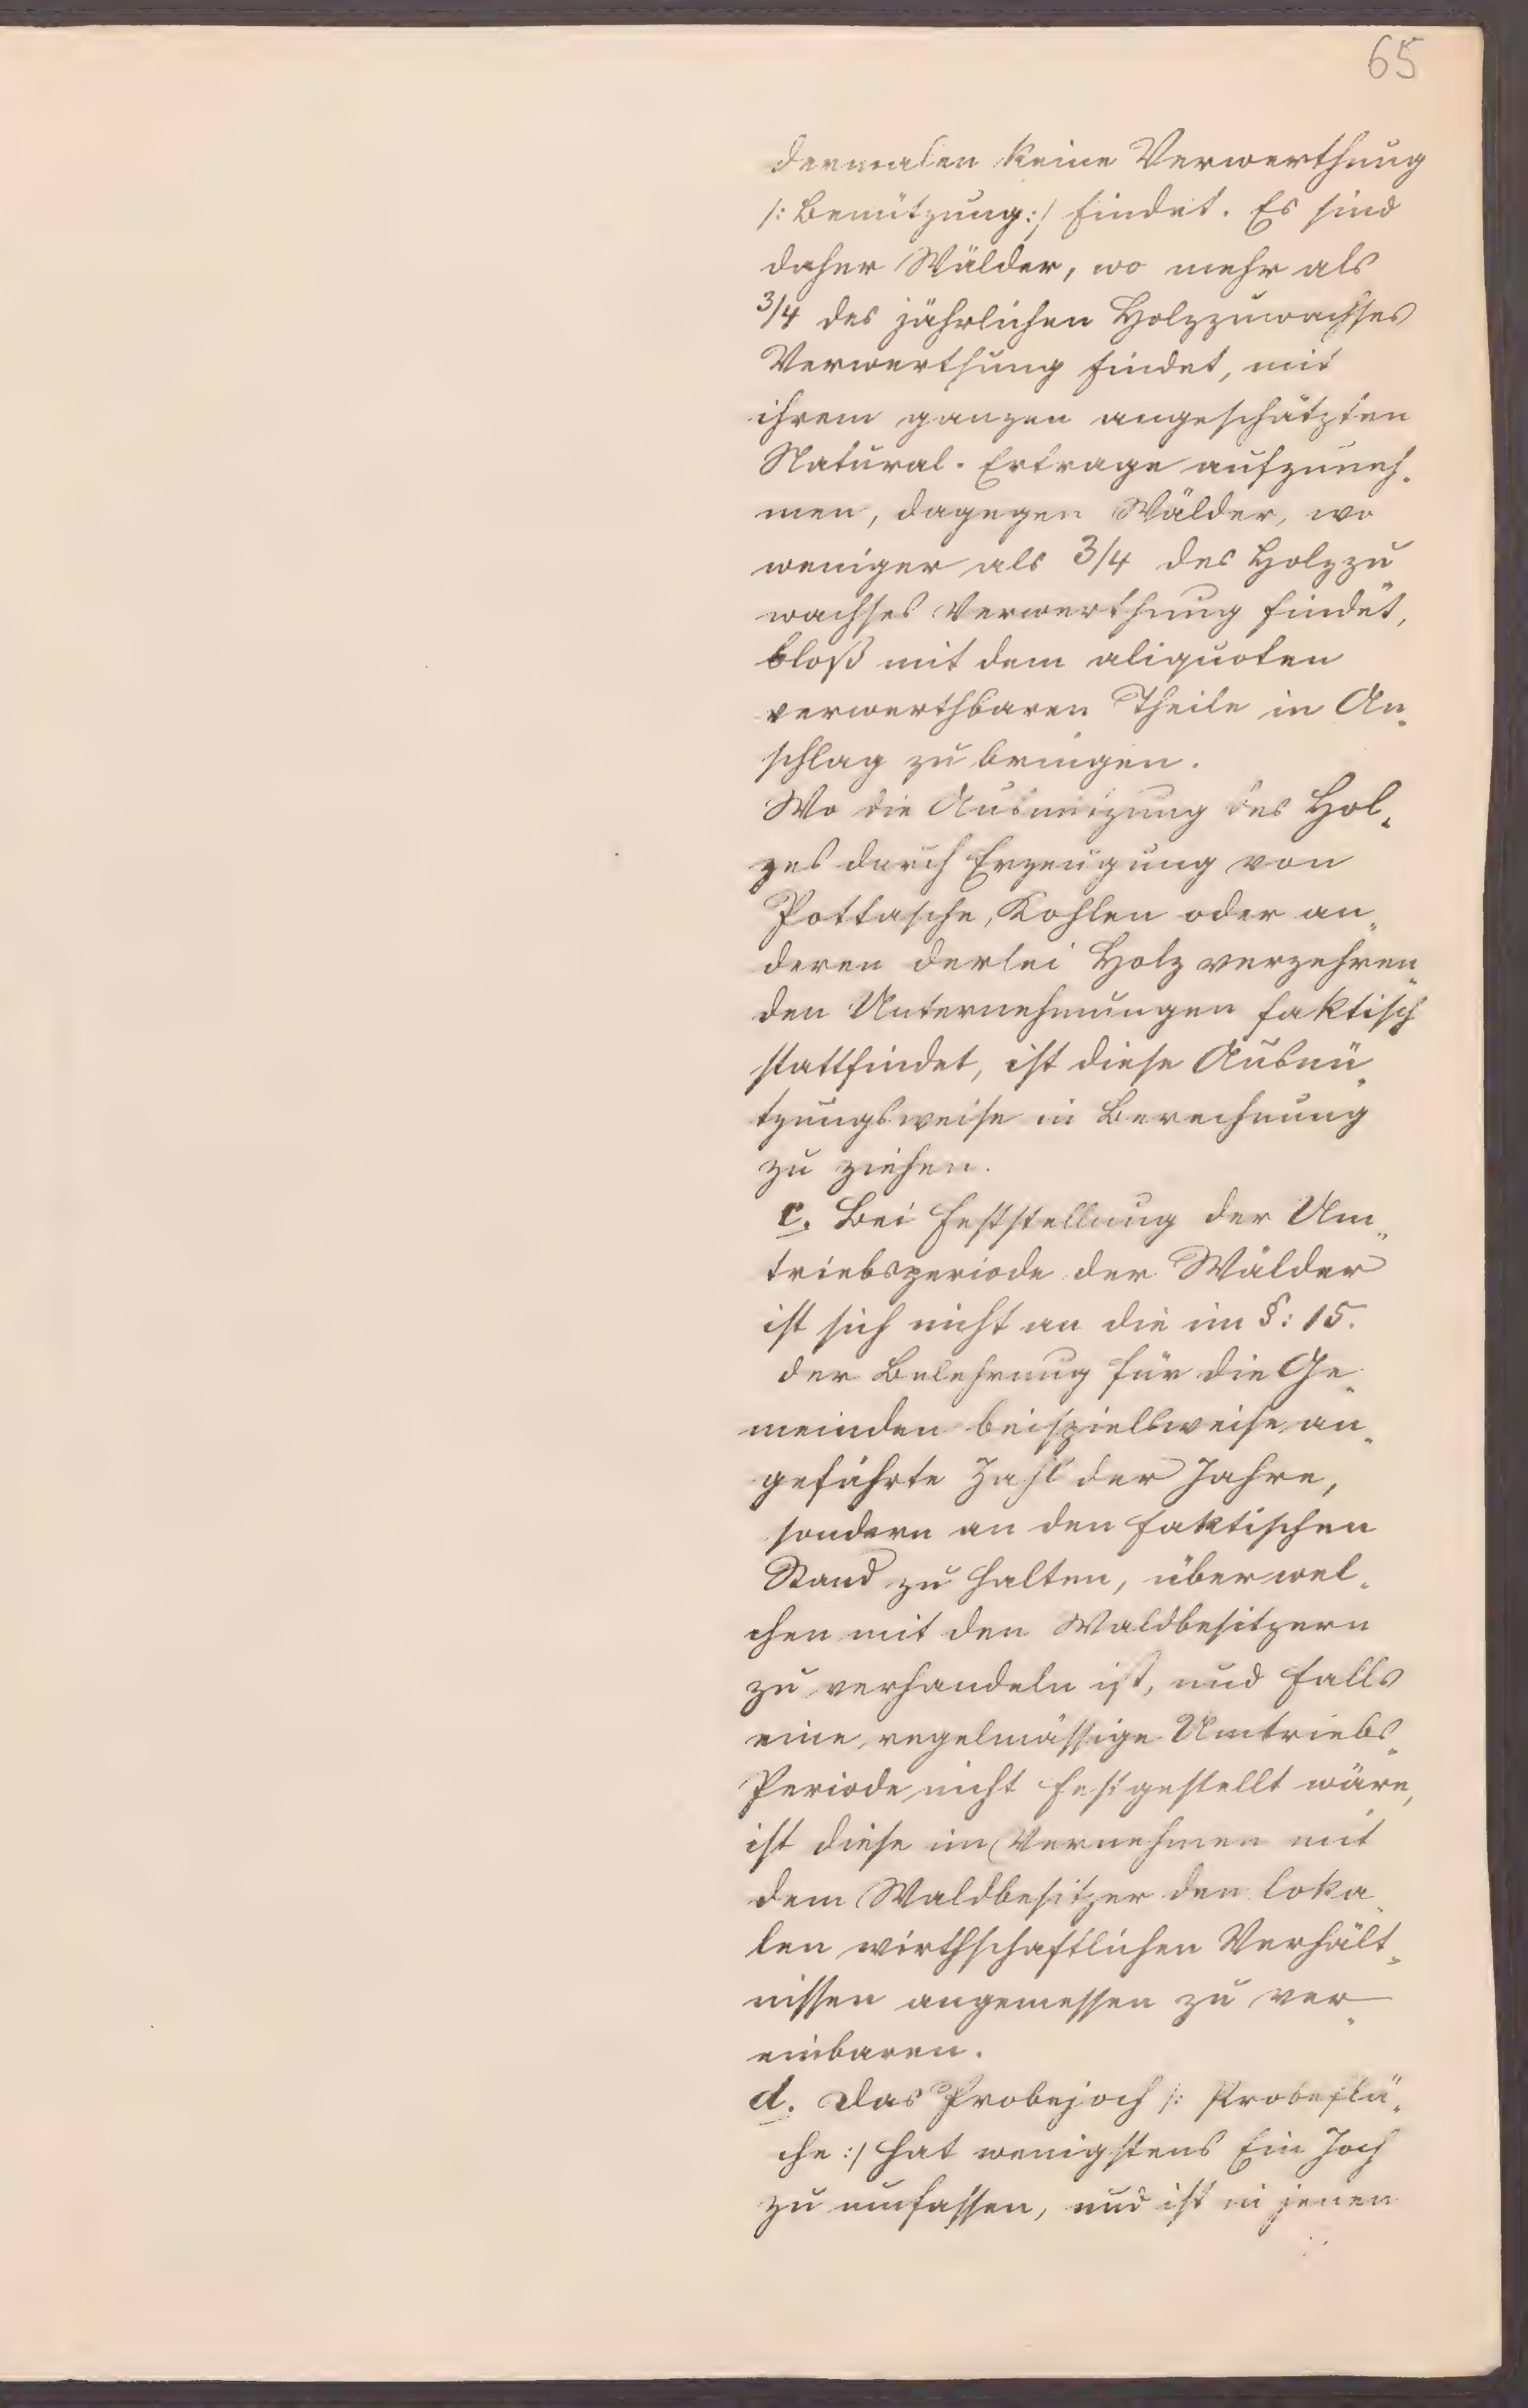 65
dermalen keine Verwerthung
/: Benützung :/ findet. Es sind
daher Wälder, wo mehr als
3/4 des jährlichen Holzzuwachses
Verwerthung findet, mit
ihrem ganzen angeschätzten
Natural-Ertrage aufzuneh-
men, dagegen Wälder, wo
weniger als 3/4 des Holzzu
wachses Verwerthung findet,
bloß mit dem aliquoten
verwerthbaren Theile in An-
schlag zu bringen.
Wo die Ausnützung des Hol-
zes durch Erzeugung von
Pottasche, Kohlen oder an-
deren derlei Holz verzehren-
den Unternehmungen faktisch
stattfindet, ist diese Ausnü-
tzungsweise in Berechnung
zu ziehen.
c. Bei Feststellung der Um-
triebsperiode der Wälder
ist sich nicht an die im §: 15.
der Belehrung für die Ge-
meinden beispielsweise an-
geführte Zahl der Jahre,
sondern an den faktischen
Stand zu halten, über wel-
chen mit den Waldbesitzern
zu verhandeln ist, und falls
eine regelmässige Umtriebs-
Periode nicht festgestellt wäre,
ist diese im Vernehmen mit
dem Waldbesitzer den loka-
len wirthschaftlichen Verhält-
nissen angemessen zu ver-
einbaren.
d. Das Probejoch /: Probeflä-
che :/ hat wenigstens Ein Joch
zu umfassen, und ist in jenen